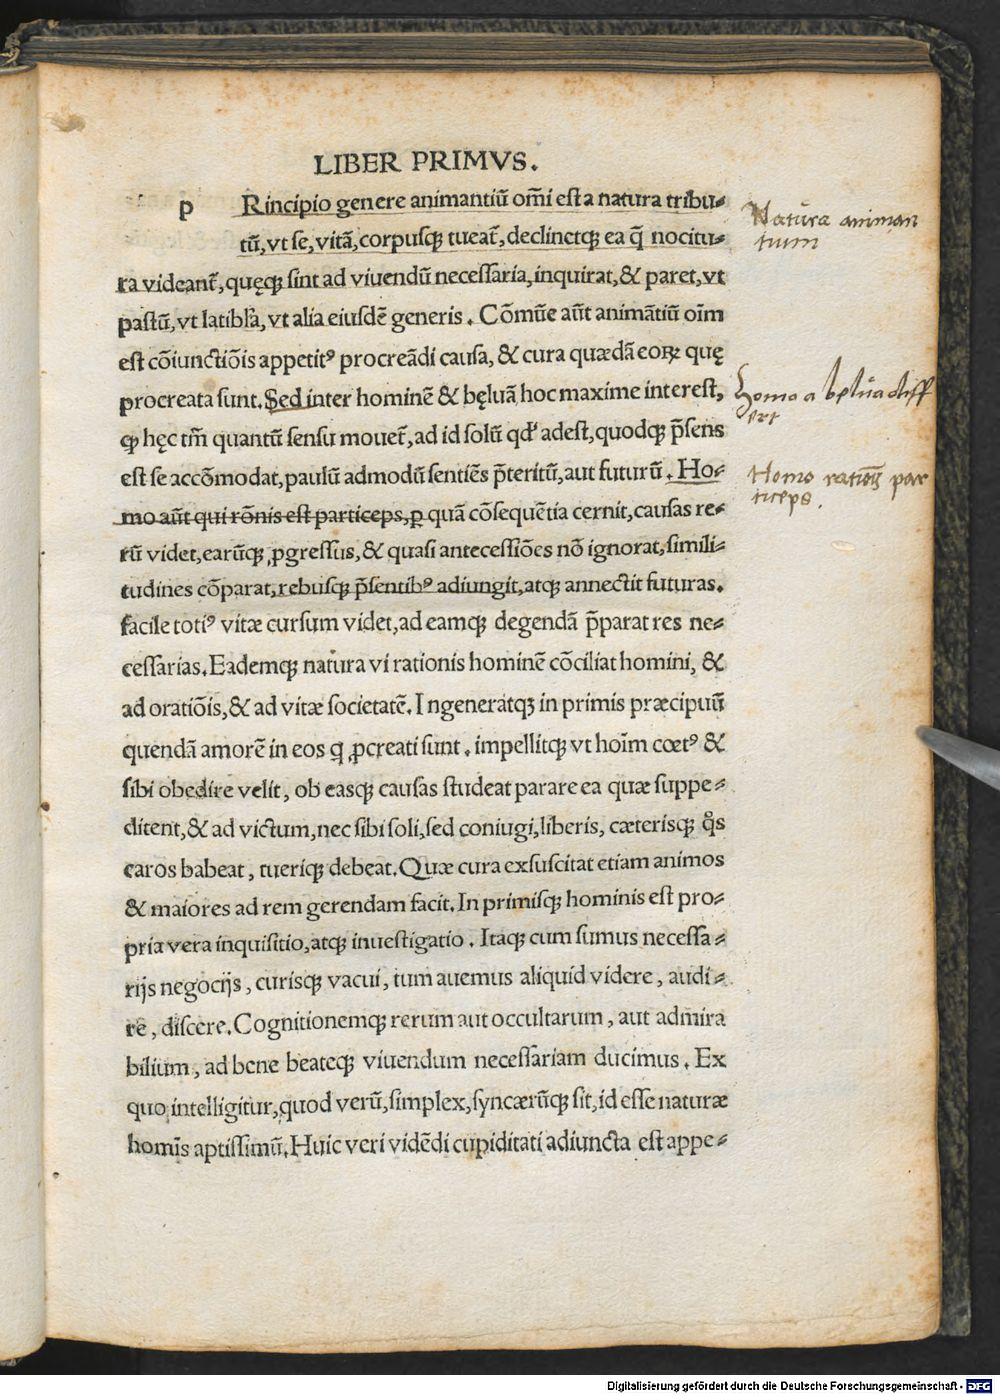 LIBER PRIMVS.
p Rincipio genere animantiũ om̃i est a natura tribu⸗
tũ, vt se, vitã, corpusq̃ tueat᷑, declinetq̃ ea q̃ nocitu⸗
ra videant᷑, quęq̃ sint ad viuendũ necessaria, inquirat, & paret, vt
pastũ, vt latibl̃a, vt alia eiusdẽ generis. Cõmũe aũt animãtiũ oĩm
est cõiunctiõis appetitꝰ procreãdi causa, & cura quædã eoꝝ quę
procreata sunt. Sed inter hominẽ & bęluã hoc maxime interest,
ꝙ hęc tm̃ quantũ sensu mouet᷑, ad id solũ qd̃ adest, quodq̃ p̃sens
est se accõmodat, paulũ admodũ sentiẽs p̃teritũ, aut futurũ. Ho⸗
mo aũt qui rõnis est particeps, ꝑ quã cõsequẽtia cernit, causas re⸗
rũ videt, earũq̃ ꝓgressus, & quasi antecessiões nõ ignorat, simili⸗
tudines cõparat, rebusq̃ p̃sentibꝰ adiungit, atq̃ annectit futuras.
facile totiꝰ vitæ cursum videt, ad eamq̃ degendã p̃parat res ne⸗
cessarias. Eademq̃ natura vi rationis hominẽ cõciliat homini, &
ad oratiõis, & ad vitæ societatẽ. Ingeneratqꝫ in primis præcipuũ
quendã amorẽ in eos q̃ ꝓcreati sunt. impellitq̃ vt hoĩm cœtꝰ &
sibi obedire velit, ob easq̃ causas studeat parare ea quæ suppe⸗
ditent, & ad victum, nec sibi soli, sed coniugi, liberis, cæterisq̃ q̊s
caros babeat, tueriq̃ debeat. Quæ cura exsuscitat etiam animos
& maiores ad rem gerendam facit. In primisq̃ hominis est pro⸗
pria vera inquisitio, atq̃ inuestigatio. Itaq̃ cum sumus necessa⸗
rijs negocijs, curisq̃ vacui, tum auemus aliquid videre, audi⸗
re, discere. Cognitionemq̃ rerum aut occultarum, aut admira
bilium, ad bene beateq̃ viuendum necessariam ducimus. Ex
quo intelligitur, quod verũ, simplex, syncærũq̃ sit, id esse naturæ
homĩs aptissimũ. Huic veri vidẽdi cupiditati adiuncta est appe⸗
Natura animan
tium
homo a bęlua diff
ert
Homo rationis par
ticeps.
Digitalisierung gefördert durch die Deutsche Forschungsgemeinschaft - DFG